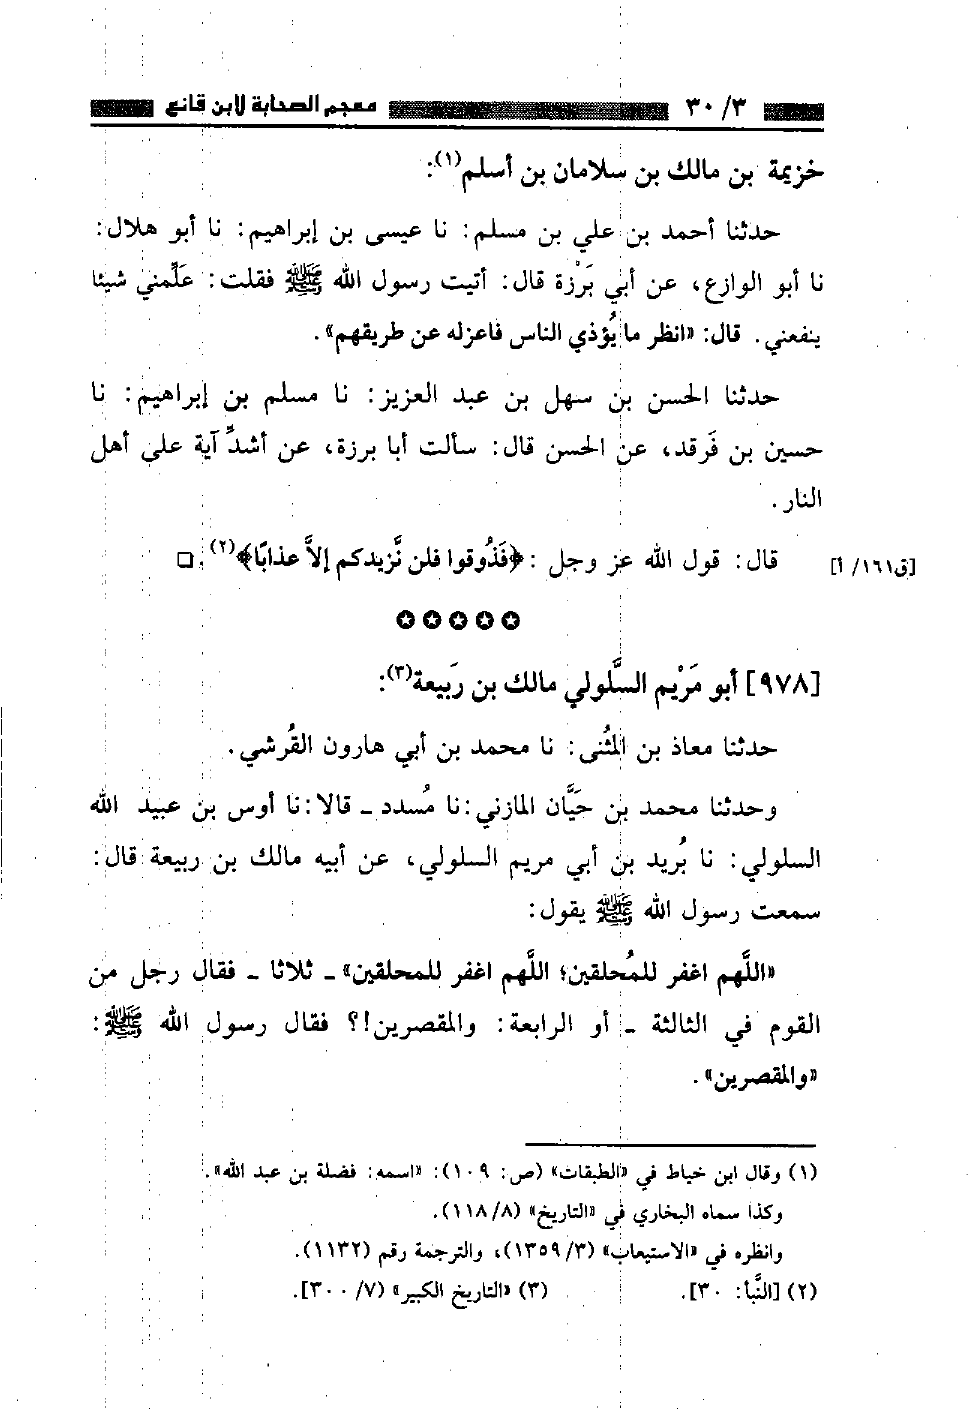 ٣٠/٣ معجم الصحابة لابن قانع
خزيمة بن مالك بن سلامان بن أسلم(١):
حدثنا أحمد بن علي بن مسلم: نا عيسى بن إبراهيم: نا أبو هلال:
نا أبو الوازع، عن أبي بَرْزة قال: أتيت رسول الله ﷺ فقلت: عَلِّمني شيئا
ينفعني. قال: «انظر ما يُؤذي الناس فاعزله عن طريقهم».
حدثنا الحسن بن سهل بن عبد العزيز: نا مسلم بن إبراهيم: نا
حسين بن فَرقد، عن الحسن قال: سألت أبا برزة، عن أشدِّ آية على أهل
النار.
[ق١٦١/أ] قال: قول الله عز وجل: ﴿فَذُوقوا فلن نَّزيدكم إلاَّ عذابًا﴾(٢). □
✪ ✪ ✪ ✪ ✪
[٩٧٨] أبو مَرْيم السَّلولي مالك بن رَبيعة(٣):
حدثنا معاذ بن المُثنى: نا محمد بن أبي هارون القُرشي.
وحدثنا محمد بن حَيَّان المازني: نا مُسدد ـ قالا: نا أوس بن عبيد الله
السلولي: نا بُريد بن أبي مريم السلولي، عن أبيه مالك بن ربيعة قال:
سمعت رسول الله ﷺ يقول:
«اللَّهم اغفر للمُحلقين؛ اللَّهم اغفر للمحلقين» ـ ثلاثا ـ فقال رجل من
القوم في الثالثة ـ أو الرابعة: والمقصرين!؟ فقال رسول الله ﷺ:
«والمقصرين».
(١) وقال ابن خياط في «الطبقات» (ص: ١٠٩): «اسمه: فضلة بن عبد الله».
وكذا سماه البخاري في «التاريخ» (١١٨/٨).
وانظره في «الاستيعاب» (١٣٥٩/٣)، والترجمة رقم (١١٣٢).
(٢) [النَّبأ: ٣٠]. (٣) «التاريخ الكبير» (٣٠٠/٧].